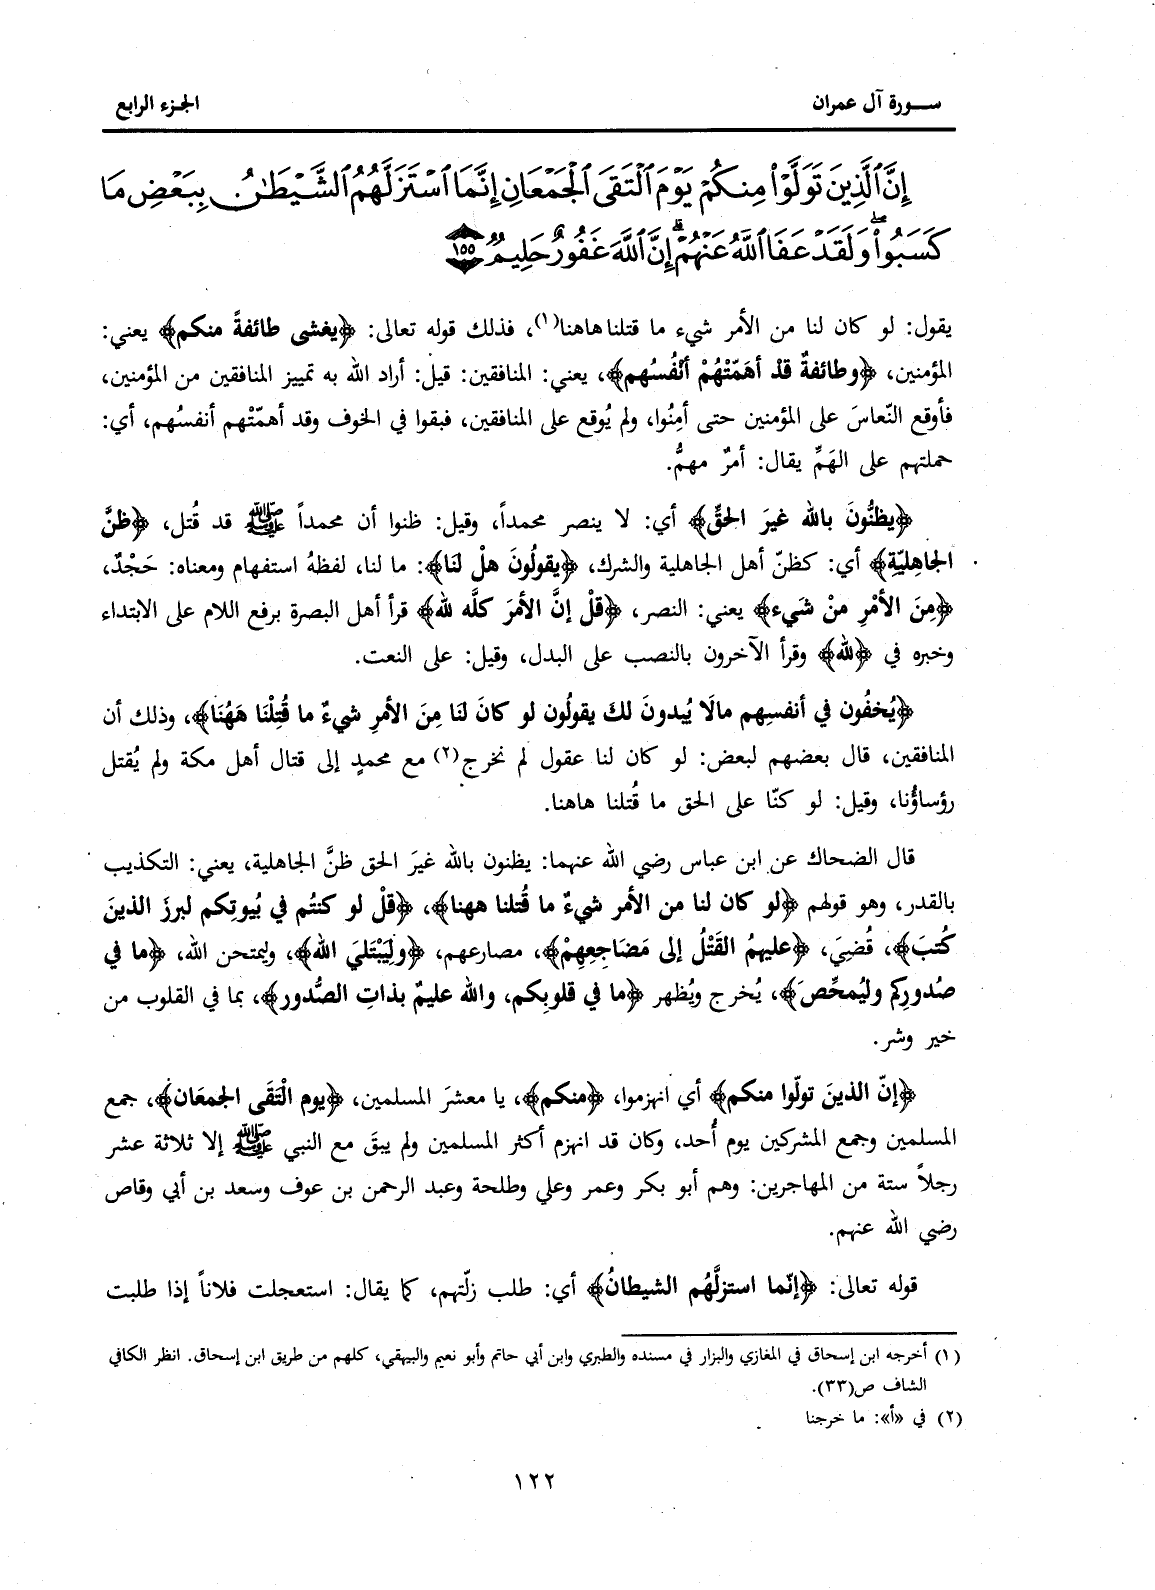 سـورة آل عمران
الجزء الرابع
إِنَّ ٱلَّذِينَ تَوَلَّوْا۟ مِنكُمْ يَوْمَ ٱلْتَقَى ٱلْجَمْعَانِ إِنَّمَا ٱسْتَزَلَّهُمُ ٱلشَّيْطَـٰنُ بِبَعْضِ مَا
كَسَبُوا۟ ۖ وَلَقَدْ عَفَا ٱللَّهُ عَنْهُمْ ۗ إِنَّ ٱللَّهَ غَفُورٌ حَلِيمٌ ﴿١٥٥﴾
يقول: لو كان لنا من الأمر شيء ما قتلنا هاهنا(١)، فذلك قوله تعالى: ﴿يغشى طائفةً منكم﴾ يعني:
المؤمنين، ﴿وطائفةٌ قدْ أهَمّتْهُمْ أنْفُسُهم﴾، يعني: المنافقين: قيل: أراد الله به تمييز المنافقين من المؤمنين،
فأوقع النّعاسَ على المؤمنين حتى أمِنُوا، ولم يُوقع على المنافقين، فبقوا في الخوف وقد أهمّتْهم أنفسُهم، أي:
حملتهم على الهَمِّ يقال: أمرٌ مهمٌّ.
﴿يظنُّونَ بالله غيرَ الحقِّ﴾ أي: لا ينصر محمداً، وقيل: ظنوا أن محمداً ﷺ قد قُتل، ﴿ظنَّ
الجاهِليّةِ﴾ أي: كظنّ أهل الجاهلية والشرك، ﴿يقولُونَ هلْ لنَا﴾: ما لنا، لفظهُ استفهام ومعناه: حَجْدٌ،
﴿مِنَ الأمْرِ منْ شَيء﴾ يعني: النصر، ﴿قلْ إنَّ الأمرَ كلَّه لله﴾ قرأ أهل البصرة برفع اللام على الابتداء
وخبره في ﴿لله﴾ وقرأ الآخرون بالنصب على البدل، وقيل: على النعت.
﴿يُخفُون في أنفسِهم مالَا يُبدونَ لكَ يقولُون لو كانَ لنا مِنَ الأمرِ شيءٌ ما قُتِلْنا هَهُنَا﴾، وذلك أن
المنافقين، قال بعضهم لبعض: لو كان لنا عقول لم نخرج(٢) مع محمدٍ إلى قتال أهل مكة ولم يُقتل
رؤساؤُنا، وقيل: لو كنّا على الحق ما قُتلنا هاهنا.
قال الضحاك عن ابن عباس رضي الله عنهما: يظنون بالله غيرَ الحق ظنَّ الجاهلية، يعني: التكذيب
بالقدر، وهو قولهم ﴿لو كان لنا من الأمر شيءٌ ما قُتلنا ههنا﴾، ﴿قلْ لو كنتُم في بُيوتِكم لبرزَ الذينَ
كُتبَ﴾، قُضيَ، ﴿عليهمُ القَتْلُ إلى مَضَاجِعِهِمْ﴾، مصارعهم، ﴿ولِيَبْتَليَ الله﴾، وليمتحن الله، ﴿ما في
صُدورِكم وليُمحِّصَ﴾، يُخرج ويُظهر ﴿ما في قلوبِكم، والله عليمٌ بذاتِ الصُّدور﴾، بما في القلوب من
خير وشر.
﴿إنّ الذينَ تولّوا منكم﴾ أي انهزموا، ﴿منكم﴾، يا معشرَ المسلمين، ﴿يوم الْتَقَى الجمعَان﴾، جمع
المسلمين وجمع المشركين يوم أُحد، وكان قد انهزم أكثر المسلمين ولم يبقَ مع النبي ﷺ إلا ثلاثة عشر
رجلاً ستة من المهاجرين: وهم أبو بكر وعمر وعلي وطلحة وعبد الرحمن بن عوف وسعد بن أبي وقاص
رضي الله عنهم.
قوله تعالى: ﴿إنّما استزلَّهُم الشيطانُ﴾ أي: طلب زلّتهم، كما يقال: استعجلت فلاناً إذا طلبت
(١) أخرجه ابن إسحاق في المغازي والبزار في مسنده والطبري وابن أبي حاتم وأبو نعيم والبيهقي، كلهم من طريق ابن إسحاق. انظر الكافي
الشاف ص(٣٣).
(٢) في «أ»: ما خرجنا
١٢٢